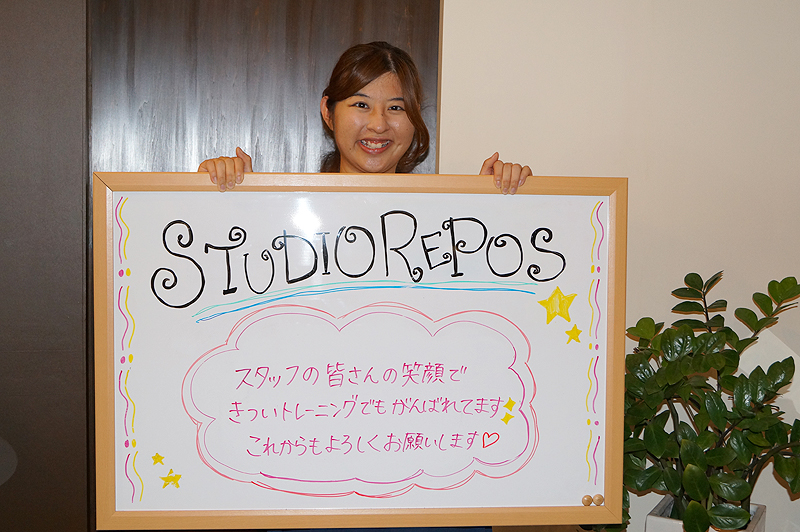 STUDIOREPOS
スタッフの皆さんの笑顔で
きついトレーニングでもがんばれてます
これからもよろしくお願いします♡